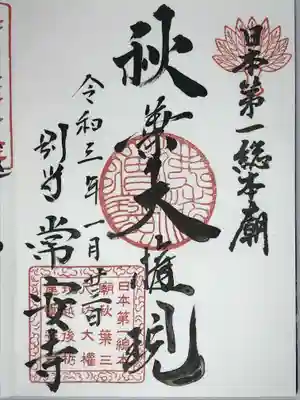 日本第一総本廟
秋葉大権現
令和三年一月廿一日
別当 常安寺
日本第一総本
廟秋葉三
大権
越後栃